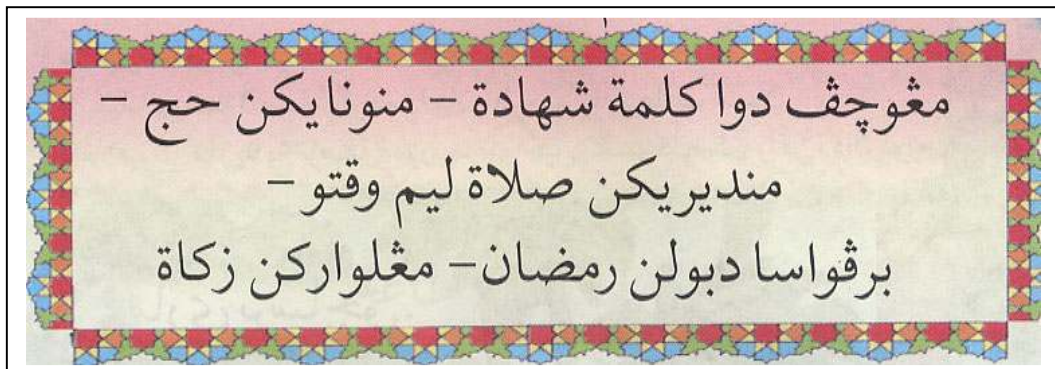 مڠوچڤ دوا كلمة شهادة – منونايكن حج –
منديريكن صلاة ليم وقتو –
برڤواسا دبولن رمضان – مڠلواركن زكاة